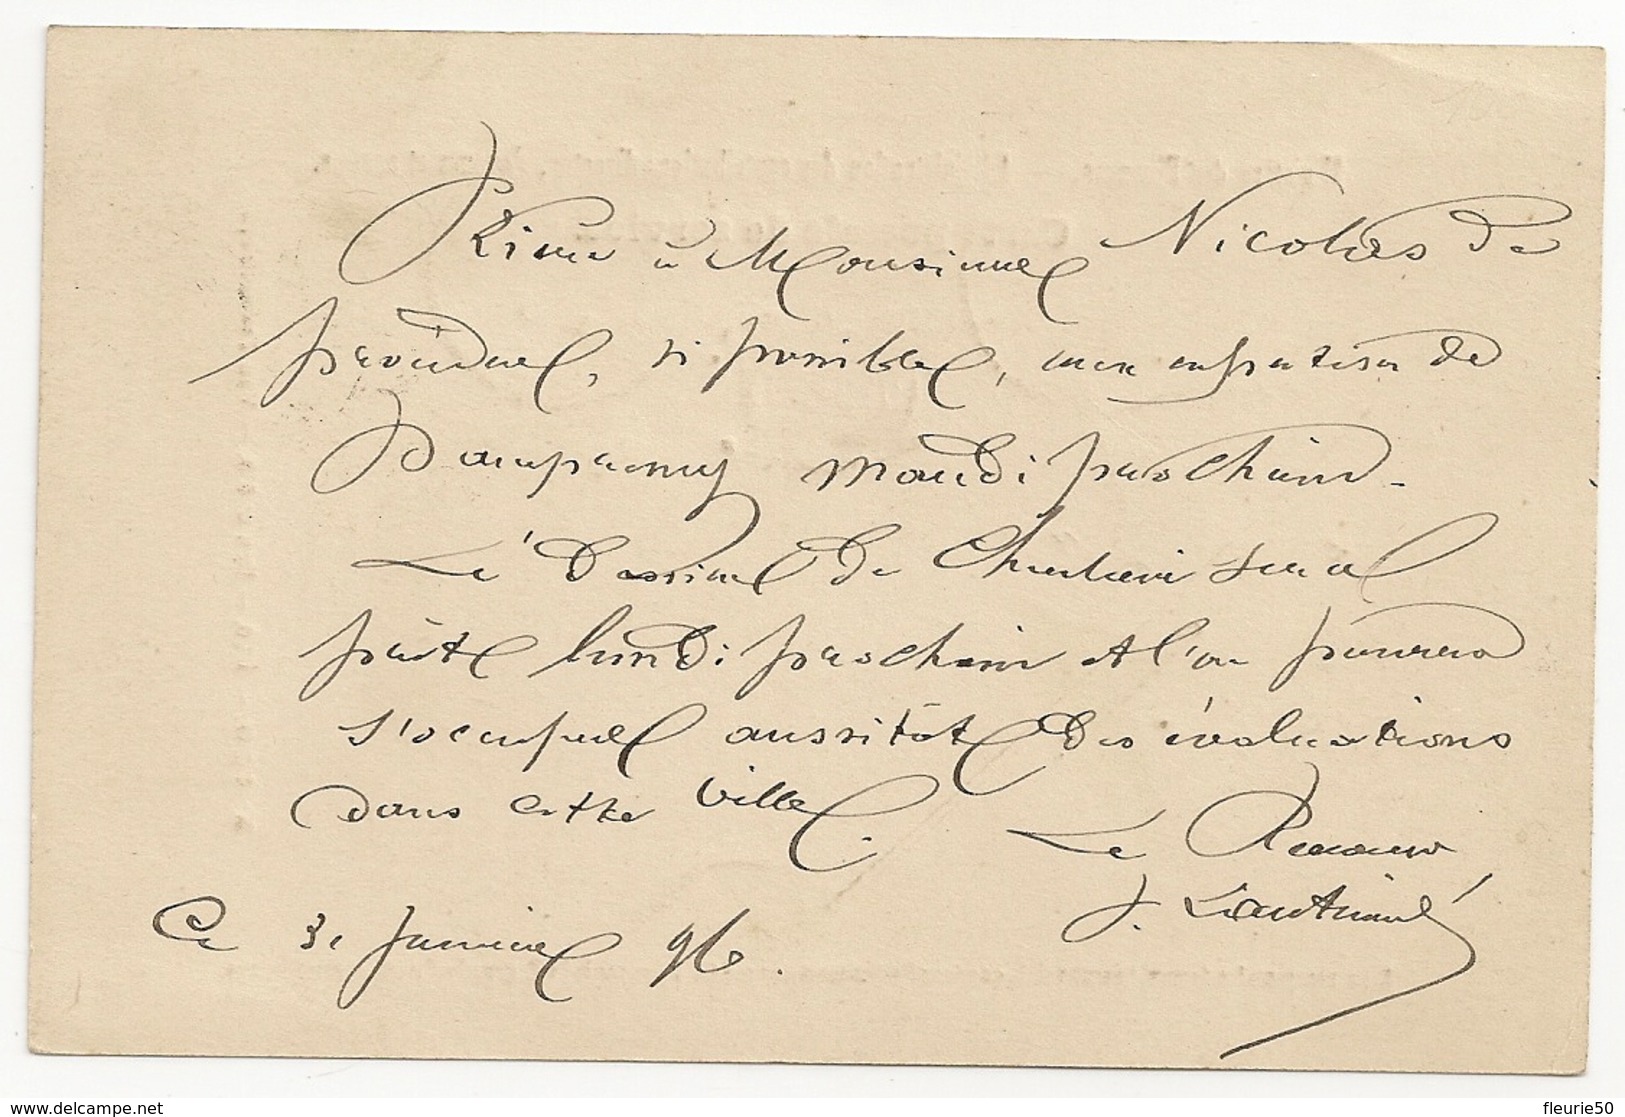 Prière à Monsieur Nicolas de
procéder, si possible, aux expertises de
Dampremy mardi prochain.
Le dossier de Charleroi sera
prêt lundi prochain et l'on pourra
s'occuper aussitôt des évaluations
dans cette ville.
Le Receveur
J.
Ce 31 Janvier 96.
www.delcampe.net
fleurie50